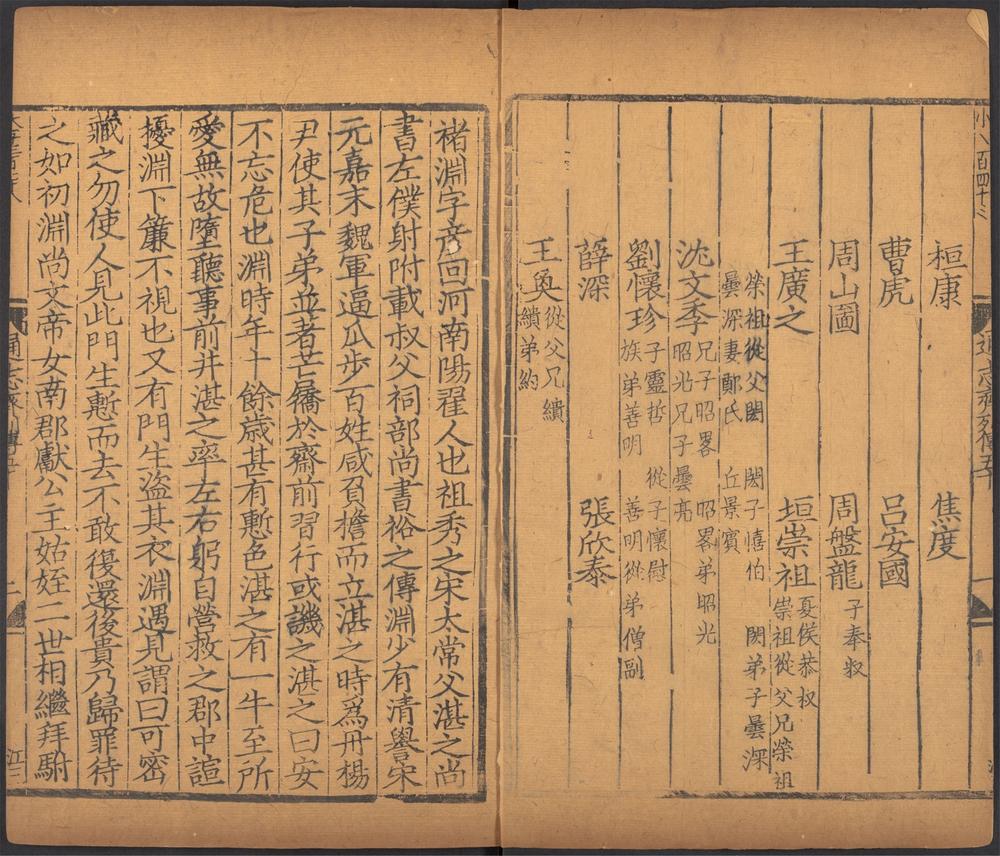 桓康 焦度
曹虎 呂安國
周山圖 周盤龍 子奉叔
王廣之 垣崇祖 夏侯恭叔 崇祖從父兄榮祖
榮祖從父閎 閎子憘伯 閎弟子曇深
曇深妻鄭氏 丘景賓
沈文季 兄子昭畧 昭畧弟昭光
昭光兄子曇亮
劉懷珍 子靈哲 從子懷慰
族弟善明 善明從弟僧副
薛深 張欣泰
王奐 從父兄繢
繢弟約
褚淵字彦回河南陽翟人也祖秀之宋太常父湛之尚
書左僕射附載叔父祠部尚書裕之傳淵少有清譽宋
元嘉末魏軍逼瓜步百姓咸負擔而立湛之時爲丹楊
尹使其子弟並著芒屩於齋前習行或譏之湛之曰安
不忘危也淵時年十餘歳甚有慙色湛之有一牛至所
愛無故墮聽事前井湛之率左右躬自營救之郡中諠
擾淵下簾不視也又有門生盜其衣淵遇見謂曰可密
藏之勿使人見此門生慙而去不敢復還後貴乃歸罪待
之如初淵尚文帝女南郡獻公主姑姪二世相繼拜駙